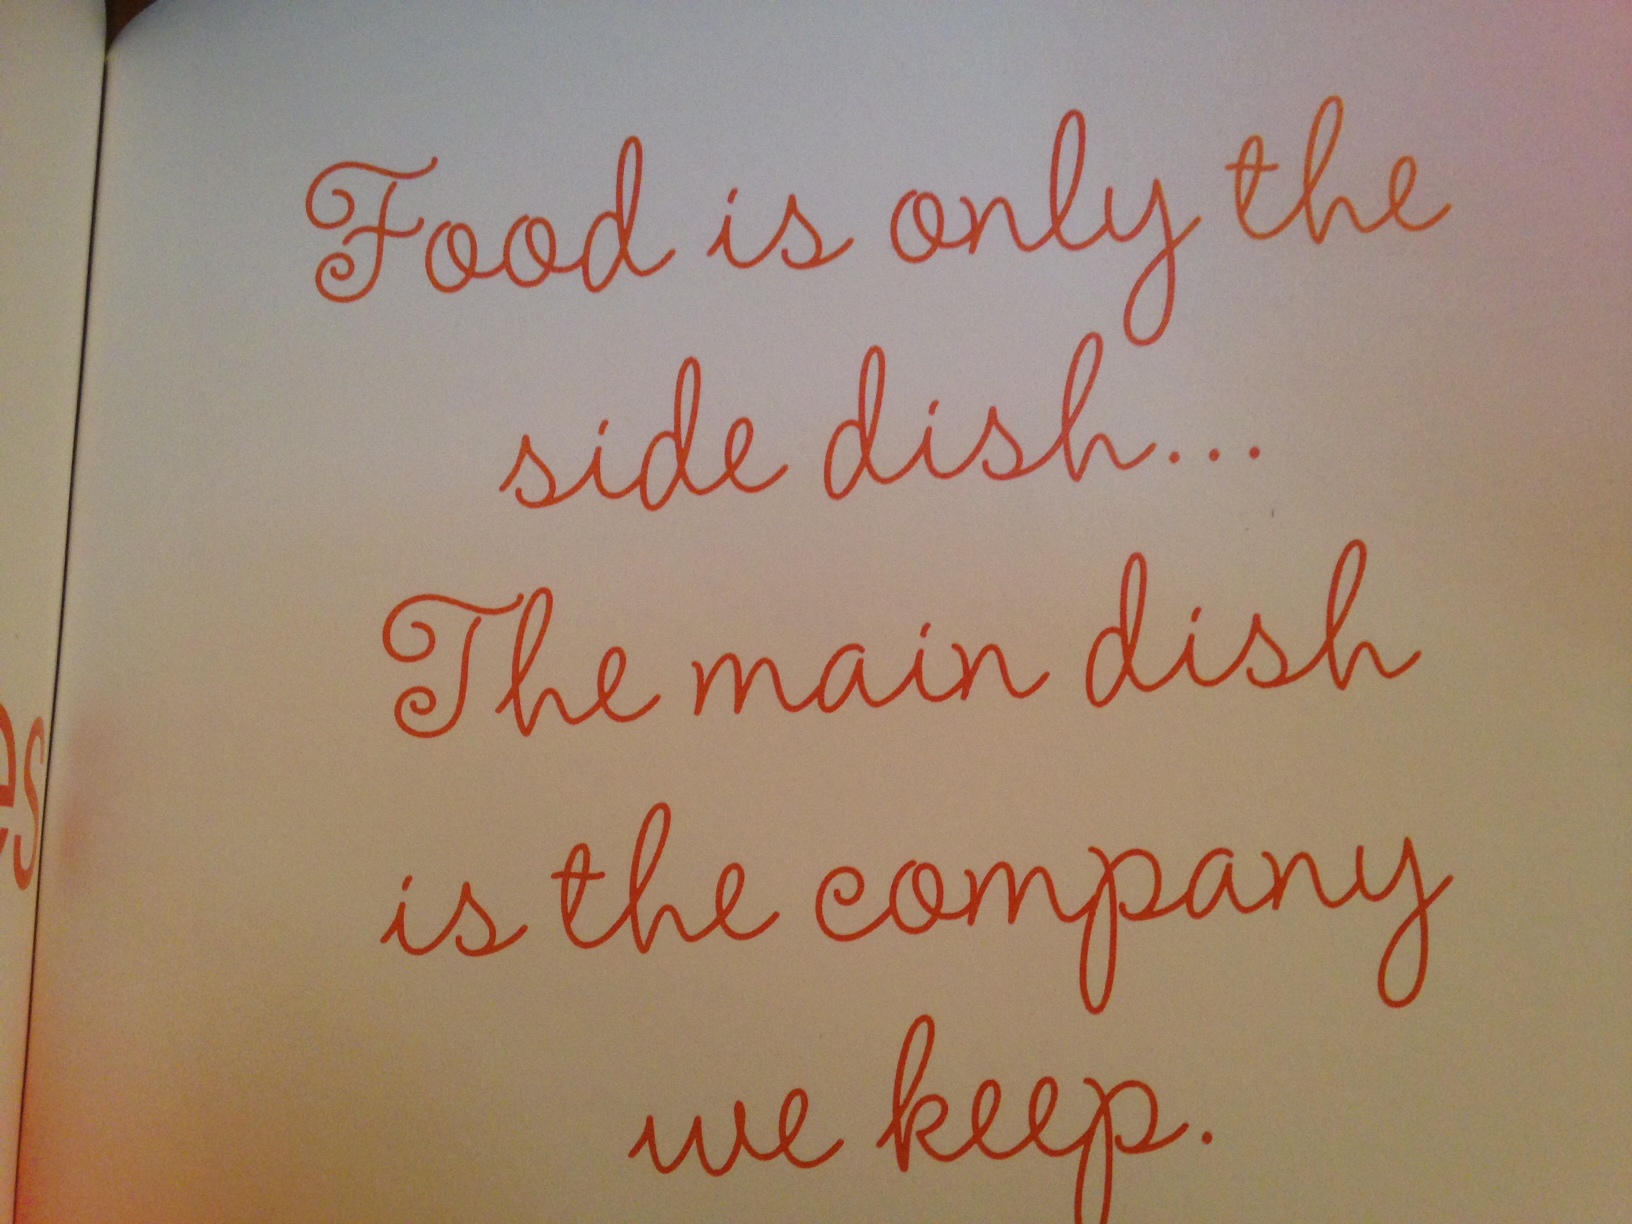 Food is only the
side dish...
The main dish
is the company
we keep.